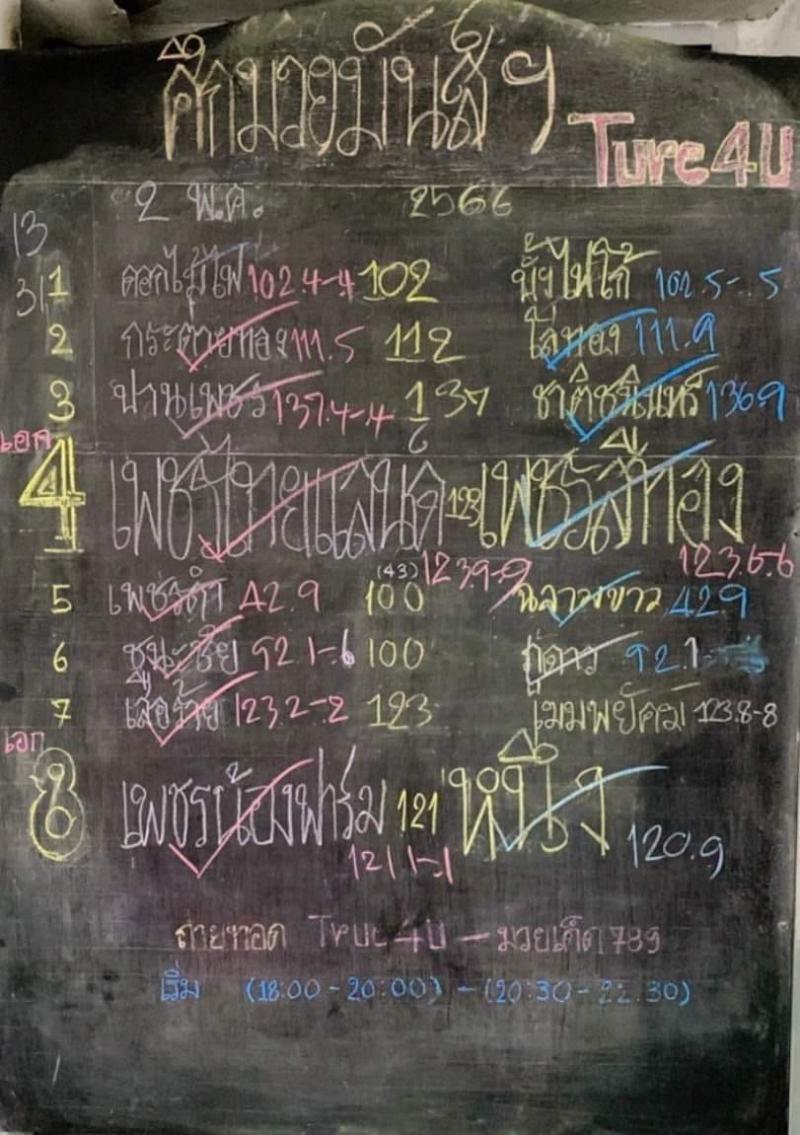 ศึกมวยมันส์ฯ
Ture4U
2 พ.ค. 2566
13
31
1 ดอกไม้ไฟ 102.4-4 102 บั้งไฟโก้ 102.5-.5
2 กระต่ายทอง 111.5 112 โล่ทอง 111.9
3 ปานเพชร 137.4-4 137 ชาติชนินทร์ 136.9
6
เอก
4 เพชรไทยแลนด์ 123 เพชรสีทอง
(43) 123.9-9 123.6-6
5 เพชรดำ 42.9 100 ฉลามขาว 42.9
6 ชนะชัย 92.1-1 100 ภูดาว 92.1
7 เสือร้าย 123.2-2 123 เมมพยัคฆ์ 123.8-8
เอก
8 เพชรน้องฟาร์ม 121 หนึ่ง
121.1-1 120.9
ถ่ายทอด True4U - มวยเด็ด789
เริ่ม (18:00-20:00) - (20:30-22.30)